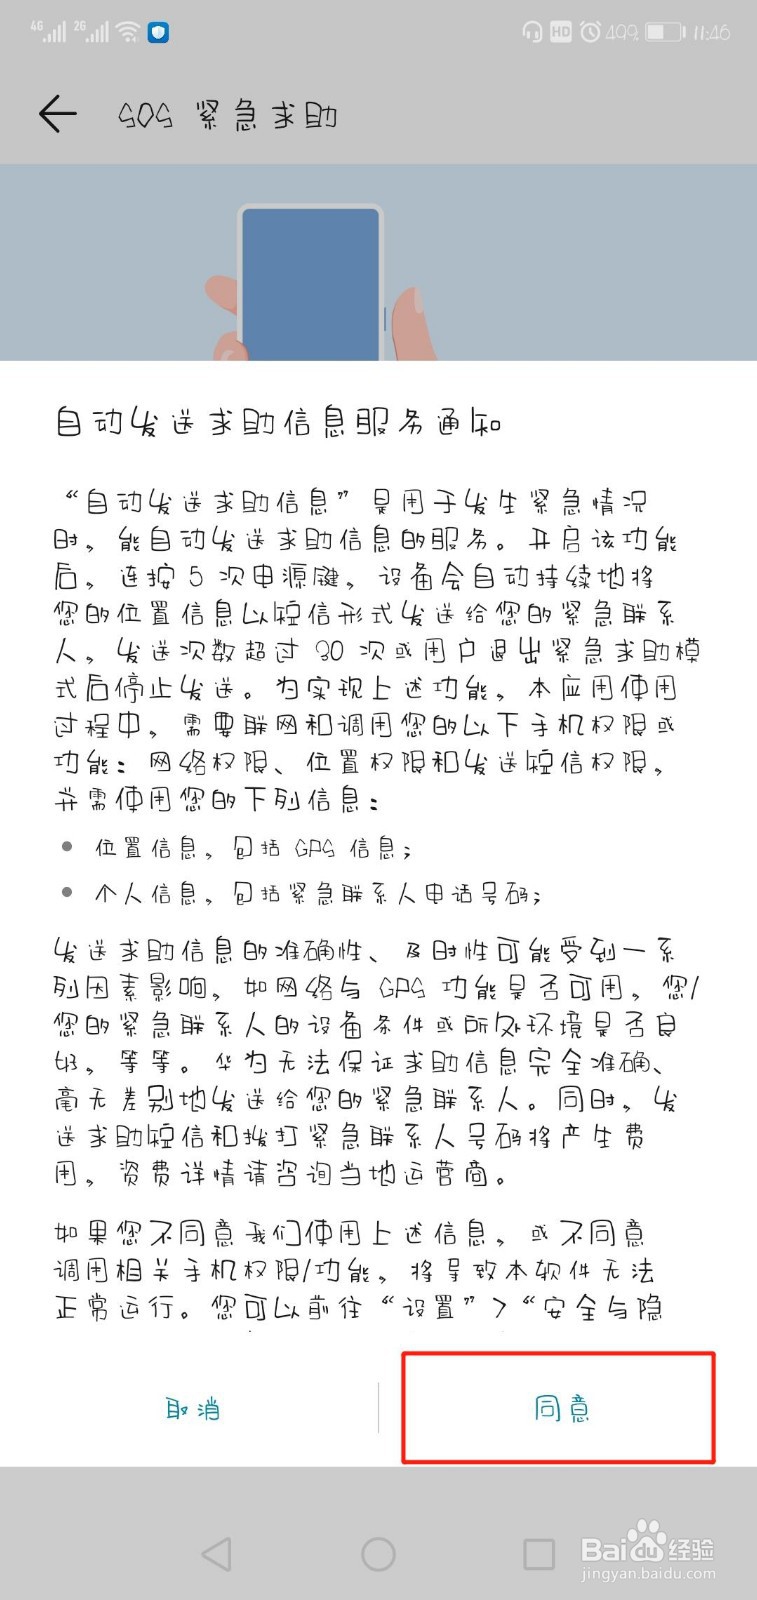 4G 2G HD 49% 11:46
SOS 紧急求助
自动发送求助信息服务通知
“自动发送求助信息”是用于发生紧急情况
时，能自动发送求助信息的服务。开启该功能
后，连按 5 次电源键，设备会自动持续地将
您的位置信息以短信形式发送给您的紧急联系
人，发送次数超过 30 次或用户退出紧急求助模
式后停止发送。为实现上述功能，本应用使用
过程中，需要联网和调用您的以下手机权限或
功能：网络权限、位置权限和发送短信权限，
并需使用您的下列信息：
• 位置信息，包括 GPS 信息；
• 个人信息，包括紧急联系人电话号码；
发送求助信息的准确性、及时性可能受到一系
列因素影响，如网络与 GPS 功能是否可用，您/
您的紧急联系人的设备条件或所处环境是否良
好，等等。华为无法保证求助信息完全准确、
毫无差别地发送给您的紧急联系人。同时，发
送求助短信和拨打紧急联系人号码将产生费
用，资费详情请咨询当地运营商。
如果您不同意我们使用上述信息，或不同意
调用相关手机权限/功能，将导致本软件无法
正常运行。您可以前往“设置”>“安全与隐
取消 同意
Baidu经验
jingyan.baidu.com